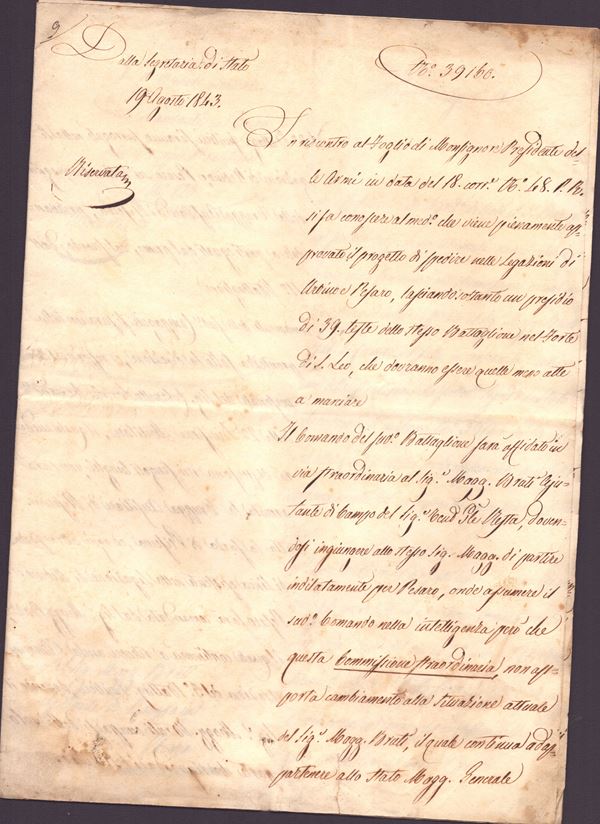 9
Dalla Segretaria di Stato
19 Agosto 1843.
No. 39160.
Riservata
In riscontro al Foglio di Monsignor Presidente del-
le Armi in data del 18. corr.e No. 48. P. R.
si fa conoscere al med.o che viene pienamente ap-
provato il progetto di spedire nelle Legazioni di
Urbino e Pesaro, lasciando soltanto un presidio
di 39. teste dello stesso Battaglione nel Forte
di S. Leo, che dovranno essere quelle meno atte
a marciare
Il Comando del sud.o Battaglione sarà affidato in
via straordinaria al Sig.r Magg. Brati Aju-
tante di Campo del Sig.r
doven-
dosi ingiungere allo stesso Sig. Magg. di partire
indilatamente per Pesaro, onde assumere il
sud.o Comando nella intelligenza però che
questa Commissione straordinaria, non ap-
porta cambiamento alla situazione attuale
del Sig.r Magg. Brati, il quale continua ad ap-
partenere allo Stato Magg. Generale